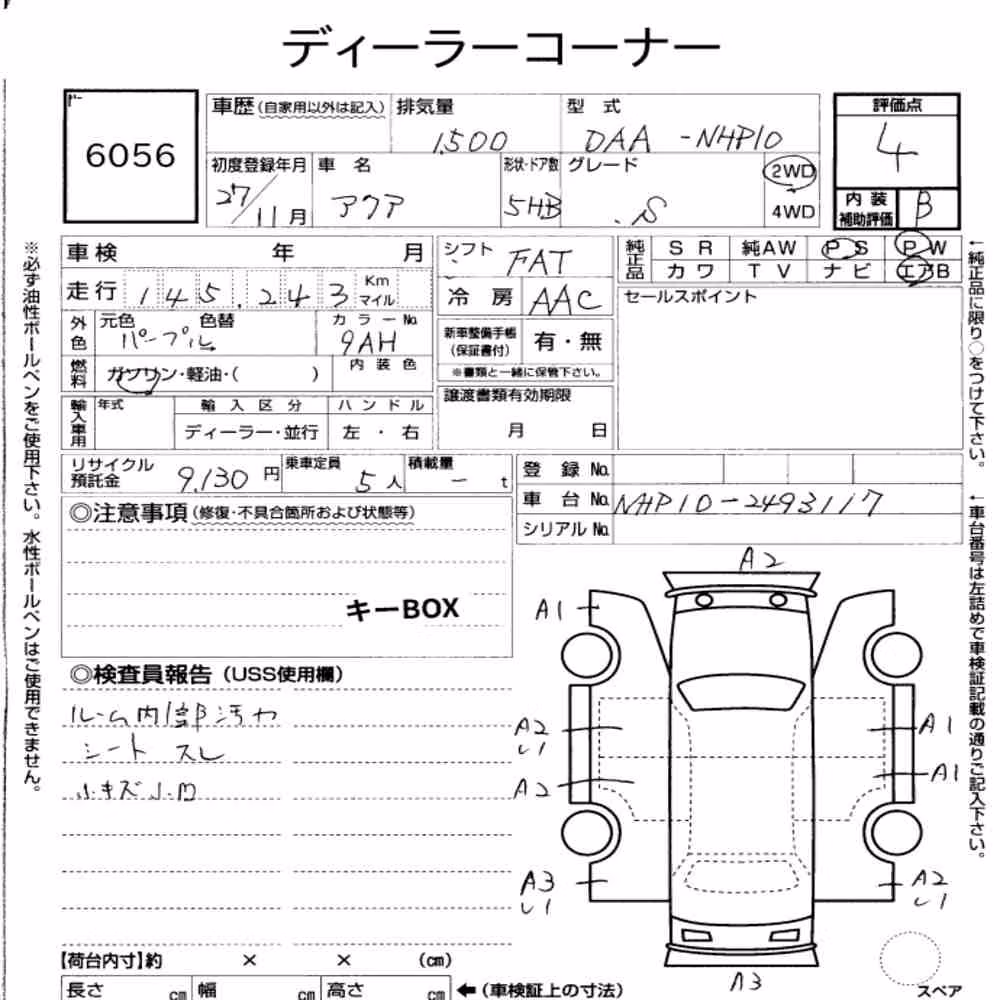 ディーラーコーナー
6056
車歴(自家用以外は記入) 排気量 型 式 評価点
1500 DAA -NHP10 4
初度登録年月 車 名 形状・ドア数 グレード 2WD
27/11月 アクア 5HB .S 4WD
内 装 補助評価 B
車検 年 月 シフト FAT 純正品 SR 純AW PS PW
カワ TV ナビ エアB
走行 145.243 Km マイル 冷 房 AAC セールスポイント
外色 元色 色替 カラーNo.
パープル 9AH 新車整備手帳(保証書付) 有・無
燃料 ガソリン・軽油・( ) 内装色 ※書類と一緒に保管下さい。
輸入車用 年式 輸入区分 ハンドル 譲渡書類有効期限
ディーラー・並行 左 ・ 右 月 日
リサイクル預託金 9,130 円 乗車定員 5 人 積載量 - t
登 録 No.
車 台 No. NHP10-2493117
シリアル No.
◎注意事項(修復・不具合箇所および状態等)
キーBOX
◎検査員報告(USS使用欄)
ルーム内部汚れ
シート スレ
小キズ小凹
A2
A1
A2 A1
し1
A2 A1
A3 A2
し1 し1
A3
スペア
【荷台内寸】約 × × (cm)
長さ cm 幅 cm 高さ cm ←(車検証上の寸法)
※必ず油性ボールペンをご使用下さい。水性ボールペンはご使用できません。
←純正品に限り○をつけて下さい。
←車台番号は左詰めで車検証記載の通りご記入下さい。